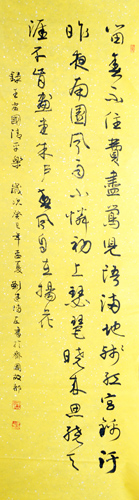 留春不住費盡鶯兒語滿地殘紅宮錦污
昨夜南園風雨小憐初上琵琶曉來思繞天
涯不肯畫堂朱戶春風自在楊花
錄王安國清平樂 歲次癸巳年孟夏 劉